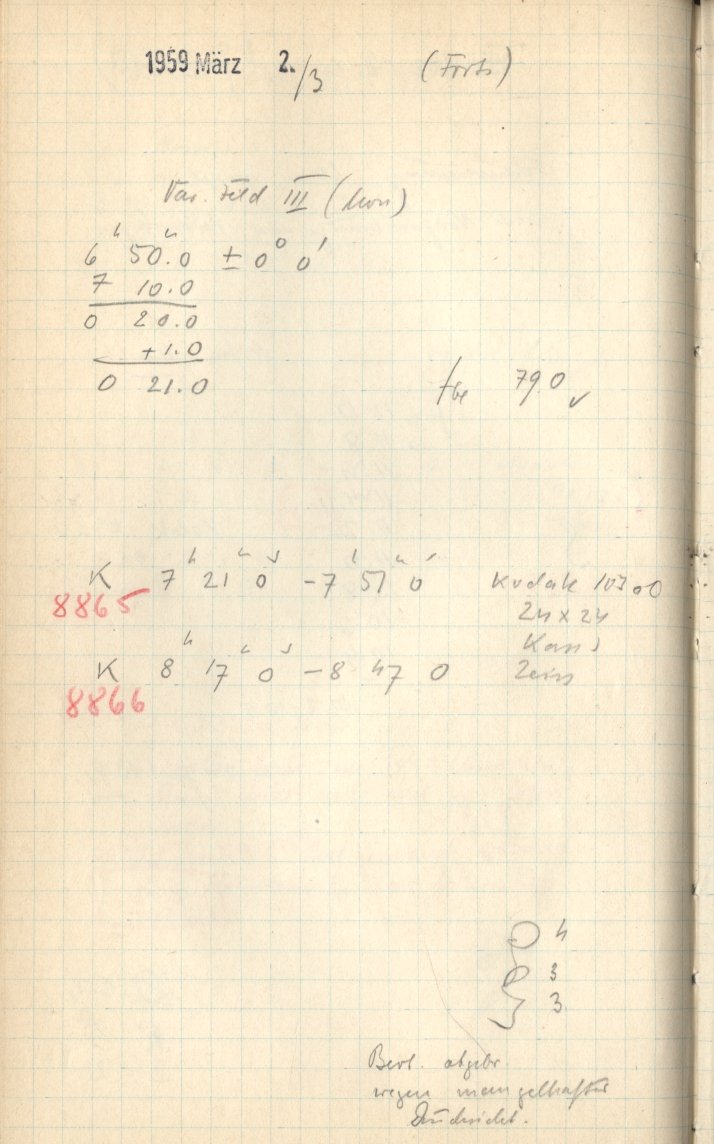 1959 März 2./3 (Forts)
Var. Feld III (Mon)
6ʰ 50ᵐ.0 ± 0° 0'
7 10.0
0 20.0
+1.0
0 21.0
790 ✓
K 7ʰ 21ᵐ 0ˢ – 7ʰ 51ᵐ 0ˢ Kodak 103a0
8865
24 x 24
Kass
K 8ʰ 17ᵐ 0ˢ – 8 47 0 Zeiss
8866
4
3
3
Beob. abgebr.
wegen mangelhafter
Durchsicht.